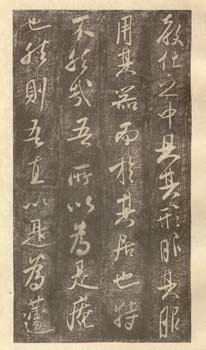 教化之中具其形服其服
用其器而於其居也特
不然哉吾所以為是庵
也然則吾直以是為蘧